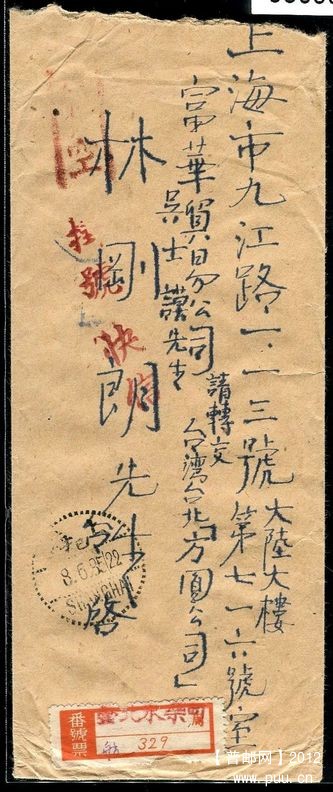 上海市九江路一一三號大陸大樓第七一六號室
富華貿易公司
吳士讓先生
請轉交
台灣台北「方圓公司」
林剛朗先生啓
空
挂號
快信
SHANGHAI
臺北永樂町
番號票
329
【普邮网】2012
www.puu.cn